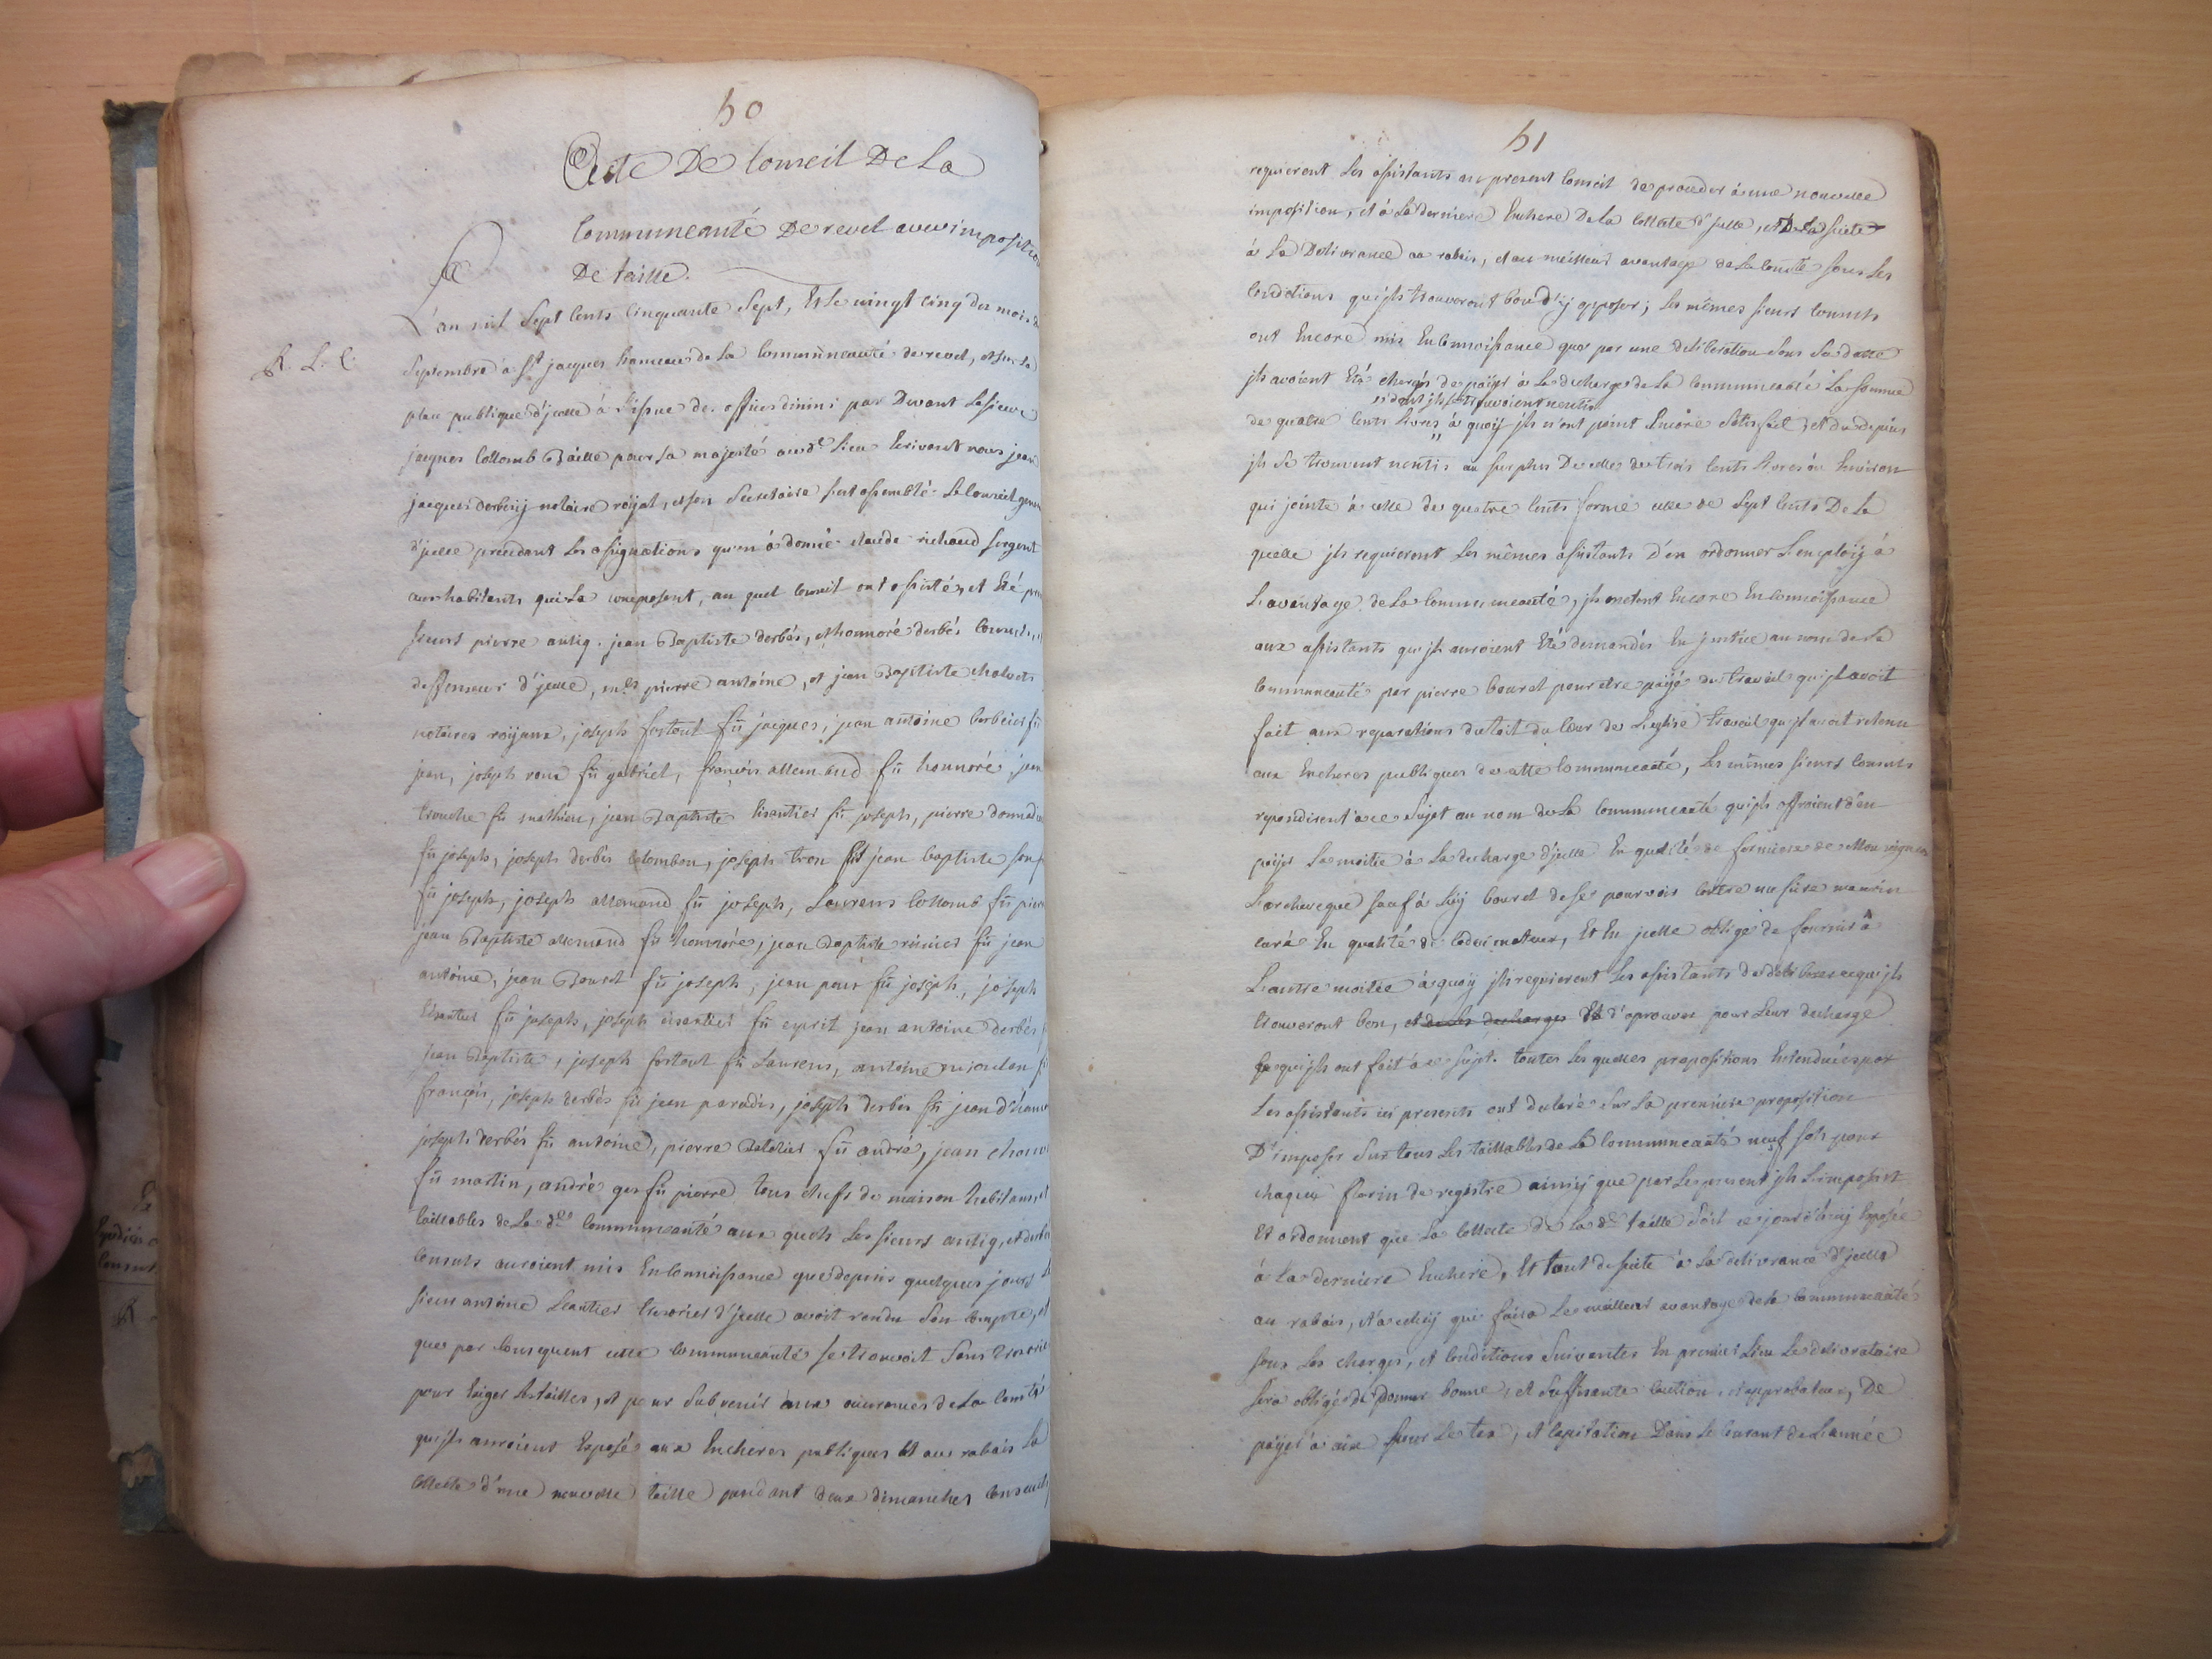 50
Acte De Conseil De La
Communeauté De revel avec imposition
De taille.
L'an mil Sept Cents Cinquante Sept, Et Le vingt cinq du mois de
R. L. C.
Septembre à St jacques hameau de La Communeauté de revel, et sur La
place publique d'jcelle à L'issue des offices divins par Devant Le sieur
jacques Collomb Baille pour Sa majesté audt Lieu Ecrivant nous jean
jacques derbesy notaire royal, et son Secretaire s'est assemblé Le Conseil general
d'jcelle precedant Les assignations qu'en à donné claude richaud sergent
aux habitants qui La composent, au quel Conseil ont assistés, et Eté
sieurs pierre antig. jean Baptiste derbés, et honnoré derbés Consuls,
deffenseurs d'jcelle, mes pierre antoine, et jean Baptiste chalvets
notaires royaux, joseph fortoul fû jacques, jean antoine barbeirs fû
jean, joseph roux fû gabriel, françois allemand fû honnoré, jean
trouche fû mathieu, jean Baptiste Eisautier fû joseph, pierre donnadieu
fû joseph, joseph derbés Colomban, joseph tron fils jean baptiste
fû joseph, joseph allemand fû joseph, Laurens Collomb fû pierre
jean Baptiste allemand fû honnoré, jean Baptiste fû jean
antoine, jean Bouret fû joseph, jean fû joseph, joseph
Eisautier fû joseph, joseph eisautier fû esprit jean antoine derbés
jean Baptiste, joseph fortoul fû Laurens, antoine fû
françois, joseph derbés fû jean paradis, joseph derbes fû jean
joseph derbés fû antoine, pierre fû andré, jean
fû martin, andré fû pierre tous chefs de maison habitans, et
taillables de La dte Communeauté aux quels Les sieurs antig, et derbés
Consuls auroient mis En Connoissance que depuis quelques jours Le
sieur antoine tresorier d'jcelle avoit rendu Son Compte, et
que par Consequent cette Communeauté se trouvoit Sans tresorier
pour Exiger Les tailles, et pour Subvenir aux occurances de La Comté
qu'jls auroient Exposé aux Encheres publiques Et au rabais La
Collecte d'une nouvelle taille pendant deux dimanches Consecutifs
51
requierent Les assistants au present Conseil de proceder à une nouvelle
imposition, et à La derniere Enchere De La Collecte d'jcelle, et De La suitte
à La Delivrance au rabais, et au meilleur avantage de La Comté sous Les
Conditions qu'jls trouveront bon d'y apposer; Les mêmes sieurs Consuls
ont Encore mis En Connoissance que par une deliberation Sous Sa datte
jls avoient Eté chargés de païer à La decharge de La Communeauté La Somme
"dont jls se trouvoient nentis
de quatre Cents Livres " à quoy jls n'ont point Encore Satisfait, et du depuis
jls Se trouvent nentis au surplus De celle de trois Cents Livres ou Environ
qui jointe à celle de quatre Cents forme celle de Sept Cents De La
quelle jls requierent Les mêmes assistants d'en ordonner L'emploiy à
L'avantage de La Communeauté, jls mettent Encore En Connoissance
aux assistants qu'jls auroient Eté demandés En justice au nom de La
Communeauté par pierre bouret pour etre païé du travail qu'jl avoit
fait aux reparations du toit du Cœur de L'eglise travail qu'jl avoit retenu
aux Encheres publiques de cette Communeauté, Les mêmes sieurs Consuls
repondirent à ce Sujet au nom de La Communeauté qu'jls offroient d'en
païer La moitié à La decharge d'jcelle En qualité de fermiere de Monseigneur
L'archeveque sauf à luy bouret de se pourvoir Contre
curé En qualité de Codecimateur, Et En jcelle obligé de fournir à
L'autre moitié à quoy jls requierent Les assistants de deliberer ce qu'jls
trouveront bon, et de Les decharger Et d'aprouver pour Leur decharge
ce qu'jls ont fait à ce sujet. toutes Les quelles propositions Entenduës par
Les assistants ici presents ont declaré Sur La premiere proposition
D'imposer Sur tous Les taillables de La Communeauté neuf sols pour
chaque florin de registre ainsy que par Le present jls L'imposent
Et ordonnent que La Collecte de La dte taille Soit ce jourd'huy Exposée
à La derniere Enchere, Et tout de suite à La delivrance d'jcelle
au rabais, et à celuy qui faira Le meilleur avantage de La Communeauté
sous Les charges, et Conditions Suivantes En premier Lieu Le delivrataire
sera obligé de donner bonne, et Suffisante Caution, et approbateur, De
païer à aix pour Le tea, et Capitation Dans Le Courant de L'année